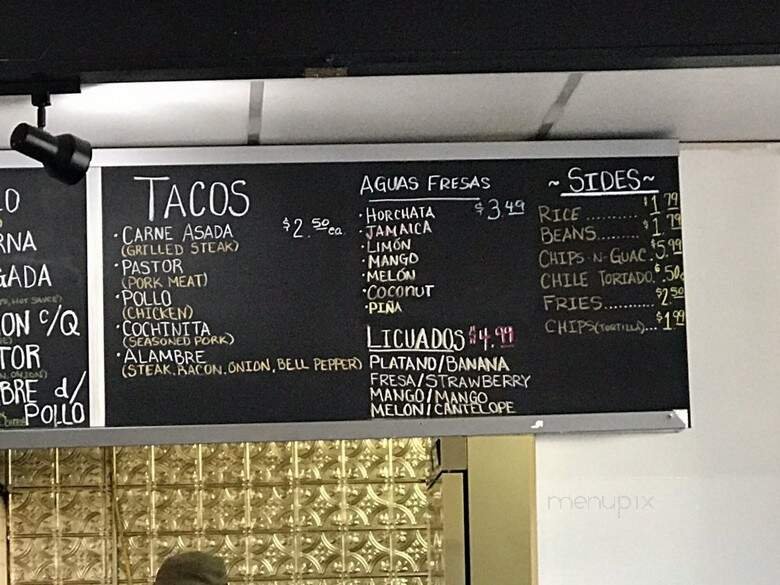 RNA
GADA
ON C/Q
TOR
BRE d/
POLLO
TACOS
$2.50 ea.
• CARNE ASADA
(GRILLED STEAK)
• PASTOR
(PORK MEAT)
• POLLO
(CHICKEN)
• COCHINITA
(SEASONED PORK)
• ALAMBRE
(STEAK, BACON, ONION, BELL PEPPER)
AGUAS FRESAS
$3.49
• HORCHATA
• JAMAICA
• LIMÓN
• MANGO
• MELÓN
• COCONUT
• PIÑA
LICUADOS $4.99
PLATANO/BANANA
FRESA/STRAWBERRY
MANGO/MANGO
MELON/CANTELOPE
~ SIDES ~
RICE .......... $1.79
BEANS........ $1.79
CHIPS-N-GUAC. $5.99
CHILE TORIADO. $.50
FRIES........... $2.50
CHIPS(TORTILLA)... $1.99
menupix